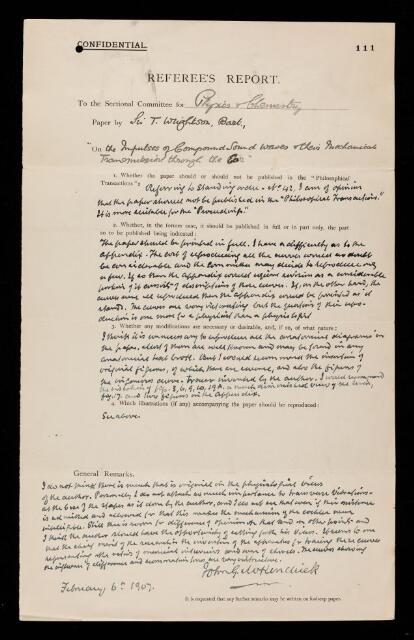 CONFIDENTIAL
111
REFEREE'S REPORT.
To the Sectional Committee for Physics & Chemistry
Paper by Sir T. Wrightson, Bart.,
"On the Impulses of Compound Sound waves & their Mechanical
Transmission through the Ear"
1. Whether the paper should or should not be published in the "Philosophical
Transactions": Referring to Standing order No 42, I am of opinion
that the paper should not be published in the "Philosophical Transactions."
It is more suitable for the "Proceedings."
2. Whether, in the former case, it should be published in full or in part only, the part
so to be published being indicated:
The paper should be printed in full. I have a difficulty as to the
appendix. The cost of reproducing all the curves would no doubt
be considerable, and the Committee may decide to reproduce only
a few. If so then the appendix would require revision as a considerable
portion of it consists of descriptions of these curves. If, on the other hand, the
curves are all reproduced then the appendix could be printed as it
stands. The curves are very interesting but the question of their repro-
duction is one more for a physicist than a physiologist
3. Whether any modifications are necessary or desirable, and, if so, of what nature:
I think it is unnecessary to reproduce all the anatomical diagrams in
the paper. Most of them are well known and may be found in any
anatomical text book. But I would recommend the insertion of
original figures, of which there are several, and also the figures of
the
invented by the author. I would recommend
4. Which illustrations (if any) accompanying the paper should be reproduced:
See above.
General Remarks.
I do not think there is much that is original in the physiological views
of the author. Personally I do not attach so much importance to transverse vibrations
at the base of the stapes as is done by the author, and I am not
is admitted and allowed for that this makes the mechanism of the cochlea more
intelligible. Still there is room for difference of opinion on that and on other points and
I think the author should have the opportunity of setting forth his views. It seems to me
that the chief merit of the research is the invention of the apparatus for tracing these curves
representing the
The curves showing
the influence of difference and summation tones are very instructive.
John G. McKendrick
February 6th 1907.
It is requested that any further remarks may be written on foolscap paper.